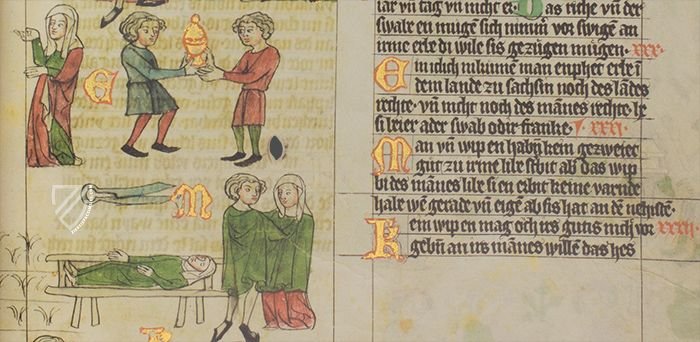 iar vn̄ tag vn̄ nicht er. Das riche vn̄ der
swale en mugē sich nimm̄ vor swigē an
irme erle di wile sis gezugen mugen. xxx.
E in iclich inkumē man enpheet erbe ī
dem lande zu sachsin noch des lādes
rechte. vn̄ nicht noch des mānes rechte he
si leier ader swab odir franke. xxxi.
M an vn̄ wip en habin kein gezweiet
gut zu irme libe stirbit ab das wip
bi des mānes libe si en erbit keine varnde
habe wen̄ gerade vn̄ eigē ab sis hat an dē nehistē.
K ein wip en mag och irs gutis nicht vor xxxii
gebn̄ an irs mānes willē das hes
E
M